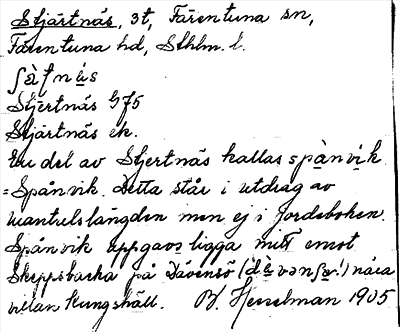 Stjärtnäs, 3t, Färentuna sn,
Färentuna hd, Sthlm. l.
ʃæ̀ʈnɑ́s
Stjertnäs G 75
Stjärtnäs ek.
En del av Stjertnäs kallas spànvi̊k
= Spånvik. Detta står i utdrag av
mantalslängden men ej i jordeboken.
Spånvik uppgavs ligga mitt emot
Skeppsbacka på Dävensö (dævənʃø!) nära
villan Kungshäll. B. Hesselman 1905